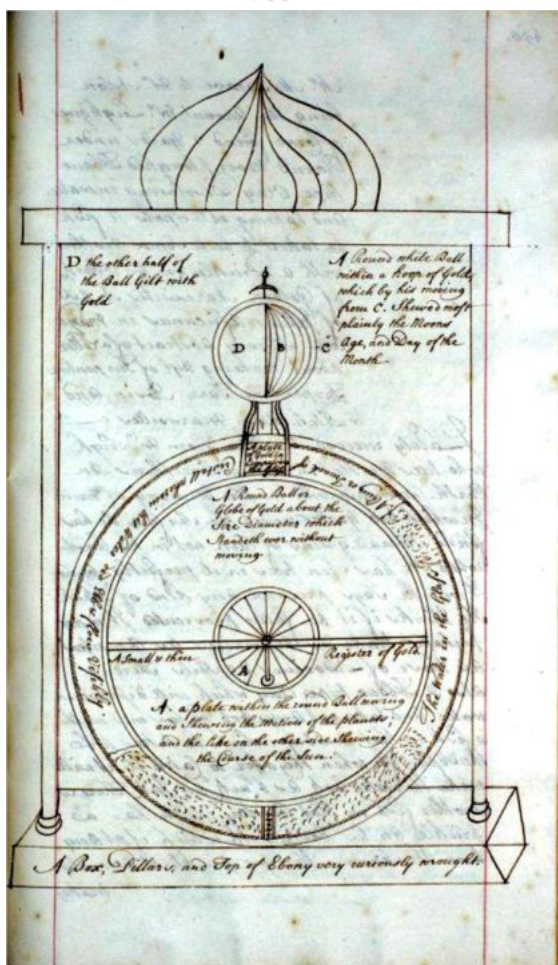 D the other half of
the Ball Gilt with
Gold
A Round white Ball
within a hoop of Gold
which by his moving
from C. Shewed most
plainly the Moons
Age, and Day of the
Month
D B C
A plate
of Gold in
A Ring or Trunk of Cristall wherein the Water is
The water in the
A Round Ball or
Globe of Gold about the
Size Diameter which
Standeth ever without
moving.
A Small & thin Register of Gold
A
A. a plate within the round Ball moving
and Shewing the Motions of the planets,
and the like on the other side Shewing
the Course of the Sun.
A Box, Pillars, and Top of Ebony very curiously wrought.